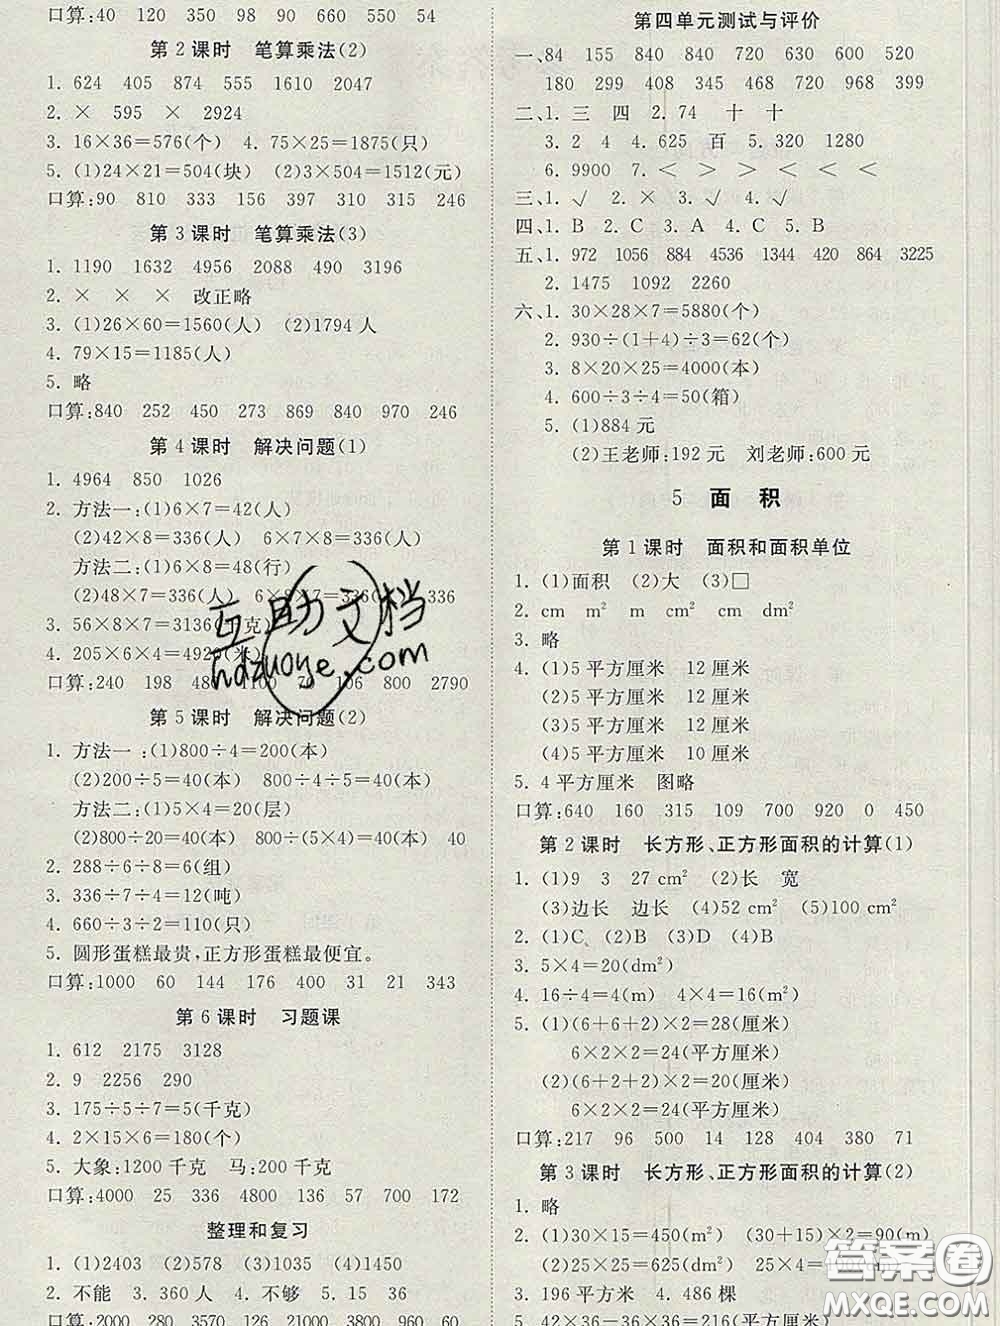 口算:40 120 350 98 90 860 550 54
第2课时 笔算乘法(2)
1. 624 405 874 555 1210 2047
2. × 595 × 2924
3. 16×36=576(个) 4. 75×25=1875(只)
5. (1)24×21=504(块) (2)3×504=1512(元)
口算:90 810 333 156 397 310 315 246
第3课时 笔算乘法(3)
1. 1190 1632 4956 2088 490 3196
2. × × × 改正略
3. (1)26×60=1560(人) (2)1794人
4. 79×15=1185(人)
5. 略
口算:840 252 450 273 869 840 970 246
第4课时 解决问题(1)
1. 4964 850 1026
2. 方法一:(1)6×7=42(人)
(2)42×8=336(人) 6×7×8=336(人)
方法二:(1)6×8=48(行)
(2)48×7=336(人) 6×8×7=336(人) 336
3. 56×8×7=3136(千克)
4. 205×6×4=4920(米)
口算:240 198 480 1100 70 106 800 2790
第5课时 解决问题(2)
1. 方法一:(1)800÷4=200(本)
(2)200÷5=40(本) 800÷4÷5=40(本)
方法二:(1)5×4=20(层)
(2)800÷20=40(本) 800÷(5×4)=40(本) 40
2. 288÷6÷8=6(组)
3. 336÷7÷4=12(吨)
4. 660÷3÷2=110(只)
5. 圆形蛋糕最贵,正方形蛋糕最便宜。
口算:1000 60 144 176 400 31 21 343
第6课时 习题课
1. 612 2175 3128
2. 9 2256 290
3. 175÷5÷7=5(千克)
4. 2×15×6=180(个)
5. 大象:1200千克 马:200千克
口算:4000 25 336 4800 136 57 700 172
整理和复习
1. (1)2403 (2)1353 (3)1035 (4)1450
2. 不能 3. 360人 4. 52 5. 15 36
口算:2000 280 3570 126 21000 3800 960 60
第四单元测试与评价
一、84 155 840 840 720 630 66 520
180 299 408 468 1551 999 638 1242
二、1. 三 四 2. 74 十 十
3. 2 4 4. 625 百 5. 320 1280
6. 9900 7. < > > < < <
三、1. √ 2. × 3. √ 4. √
四、1. B 2. C 3. A 4. C 5. B
五、1. 972 1056 884 4536 1344 420 864 3225
2. 1475 1092 2260
六、1. 30×28×7=5880(个)
2. 930÷(1+4)÷3=62(个)
3. 8×20×25=4000(本)
4. 600÷3÷4=50(箱)
5. (1)884元
(2)王老师:192元 刘老师:600元
5 面积
第1课时 面积和面积单位
1. (1)面积 (2)大 (3)□
2. cm m² m cm² cm dm²
3. 略
4. (1)5平方厘米 12厘米
(2)5平方厘米 12厘米
(3)5平方厘米 12厘米
(4)5平方厘米 10厘米
5. 4平方厘米 图略
口算:640 160 315 109 700 920 0 450
第2课时 长方形、正方形面积的计算(1)
1. (1)9 3 27 cm² (2)长 宽
(3)边长 边长 (4)52 cm² (5)100 cm²
2. (1)C (2)B (3)D (4)B
3. 5×4=20(dm²)
4. 16÷4=4(m) 4×4=16(m²)
5. (1)(6+6+2)×2=28(厘米)
6×2×2=24(平方厘米)
(2)(6+2×2)×2=20(厘米)
6×2×2=24(平方厘米)
口算:217 96 500 14 128 404 380 71
第3课时 长方形、正方形面积的计算(2)
1. 略
2. (1)30×15=450(m²) (30+15)×2=90(m)
(2)25×25=625(m²) 25×4=
3. 196平方米 4. 486棵
5. 42×36-36×36=216(平方厘米)
互助文档
hdzuoye.com
答案圈
MXQE.COM